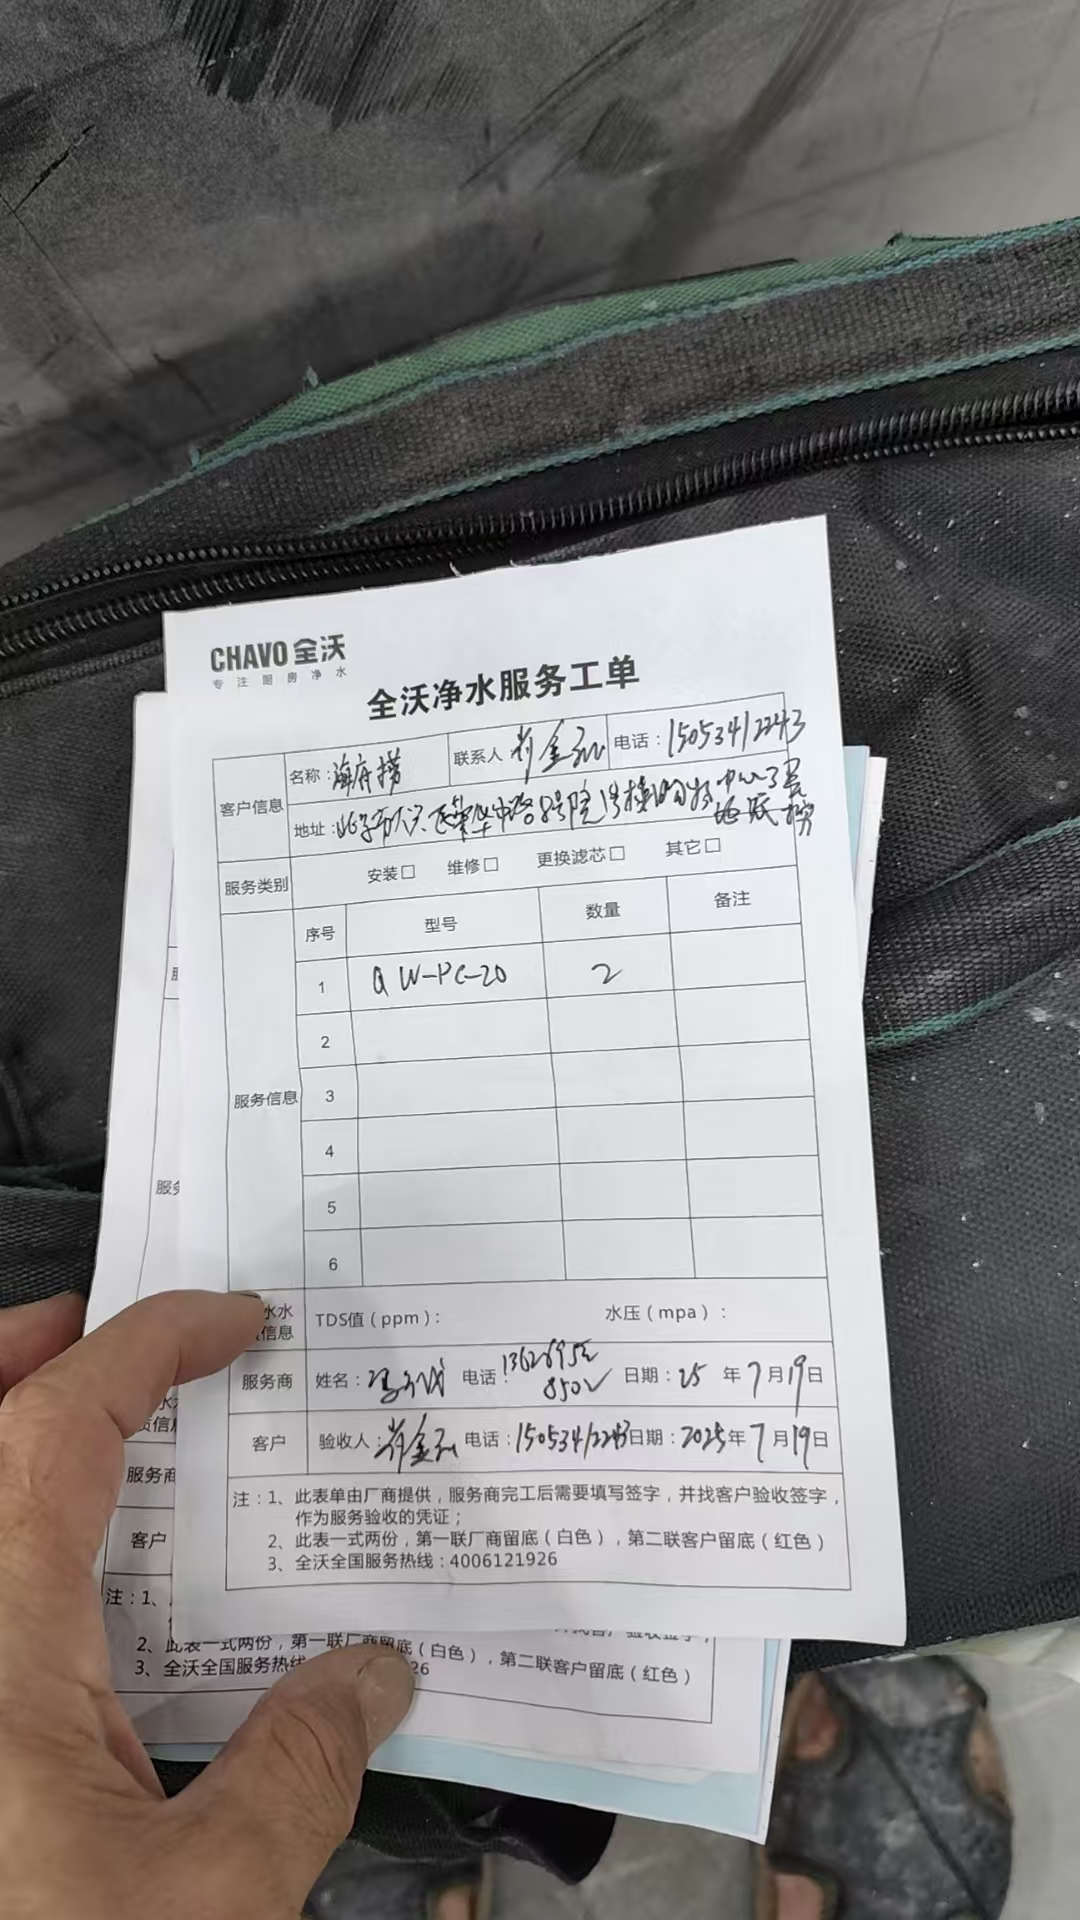 CHAVO 全沃
专注厨房净水
全沃净水服务工单
客户信息 名称：海底捞 联系人 肖金 电话：15053412243
地址：北京市大兴区荣华中路8号院1号楼购物中心3层
海底捞
服务类别 安装□ 维修□ 更换滤芯□ 其它□
服务信息 序号 型号 数量 备注
1 QW-PC-20 2
2
3
4
5
6
水水
信息 TDS值（ppm）： 水压（mpa）：
服务商 姓名： 电话： 日期：25 年 7 月 19 日
客户 验收人：肖金 电话：15053412243 日期：2025年 7 月 19 日
注：1、此表单由厂商提供，服务商完工后需要填写签字，并找客户验收签字，
作为服务验收的凭证；
2、此表一式两份，第一联厂商留底（白色），第二联客户留底（红色）
3、全沃全国服务热线：4006121926
服务商
客户
注：1、
2、此表一式两份，第一联厂商留底（白色），第二联客户留底（红色）
3、全沃全国服务热线 26